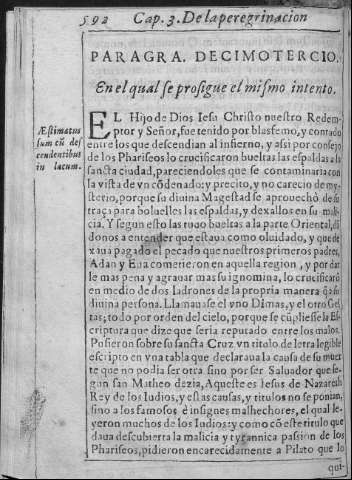 592 Cap. 3. De la peregrinacion
PARAGRA. DECIMOTERCIO.
En el qual se prosigue el mismo intento.
Æstimatus
sum cũ des
cendentibus
in lacum.
EL Hijo de Dios Iesu Christo nuestro Redem-
ptor y Señor, fue tenido por blasfemo, y contado
entre los que descendian al infierno, y assi por consejo
de los Phariseos lo crucificaron bueltas las espaldas a la
sancta ciudad, pareciendoles que se contaminaria con
la vista de vn cõdenado: y precito, y no carecio de my-
sterio, porque su diuina Magestad se aprouechò de su
traça para boluelles las espaldas, y dexallos en su mali-
cia. Y segun esto las tuuo bueltas a la parte Oriental, dã
donos a entender que estaua como oluidado, y que de
xaua pagado el pecado que nuestros primeros padres,
Adan y Eua cometieron en aquella region, y por dar
le mas pena y agrauar mas su ignominia, lo crucificarõ
en medio de dos ladrones de la propria manera q̃ a su
diuina persona. Llamauase el vno Dimas, y el otro Ges-
tas; todo por orden del cielo, porque se cũpliesse la Es-
criptura que dize que seria reputado entre los malos.
Pusieron sobre su sancta Cruz vn titulo de letra legible
escripto en vna tabla que declaraua la causa de su muer
te que no podia ser otra sino por ser Saluador que se-
gun san Matheo dezia, Aqueste es Iesus de Nazareth
Rey de los Iudios, y estas causas, y titulos no se ponian,
sino a los famosos è insignes malhechores, el qual le-
yeron muchos de los Iudios: y como cõ este titulo que
daua descubierta la malicia y tyrannica passion de los
Phariseos, pidieron encarecidamente a Pilato que lo
qui-